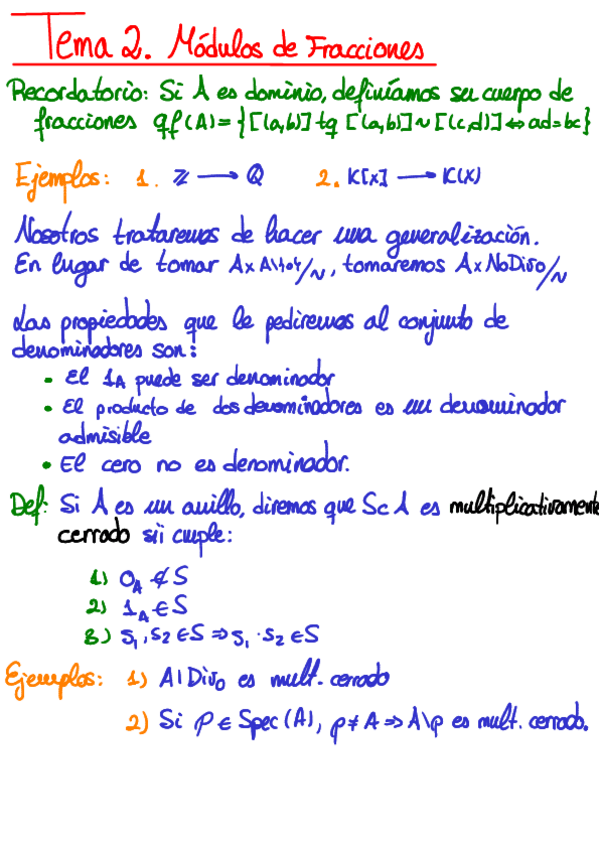 Tema 2. Módulos de Fracciones
Recordatorio: Si A es dominio, definíamos su cuerpo de
fracciones qf(A)={[(a,b)] tq [(a,b)]~[(c,d)]⇔ad=bc}
Ejemplos: 1. ℤ → Q 2. K[x] → K(x)
Nosotros trataremos de hacer una generalización.
En lugar de tomar A×A\{0}/~, tomaremos A×NoDiv0/~
Las propiedades que le pediremos al conjunto de
denominadores son:
• El 1_A puede ser denominador
• El producto de dos denominadores es un denominador
admisible
• El cero no es denominador.
Def: Si A es un anillo, diremos que S⊂A es multiplicativamente
cerrado sii cumple:
1) 0_A ∉ S
2) 1_A ∈ S
3) s₁, s₂ ∈ S ⇒ s₁·s₂ ∈ S
Ejemplos: 1) A\Div₀ es mult. cerrado
2) Si p ∈ Spec(A), p ≠ A ⇒ A\p es mult. cerrado.